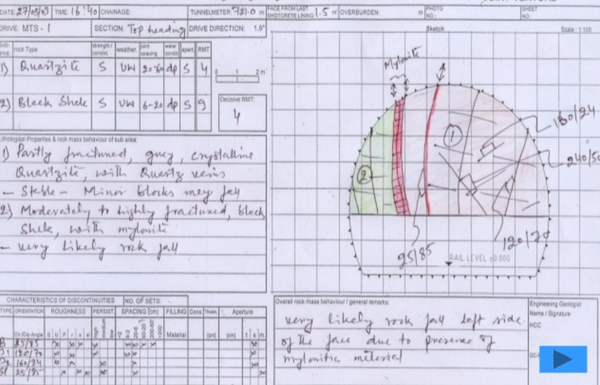 DATE: 27/05/09 TIME: 16:40 CHAINAGE: TUNNELMETER: 721.0 m FACE FROM LAST SHOTCRETE LINING 1.5 m OVERBURDEN: m PHOTO NO.: SHEET NO.
DRIVE: MTS-1 SECTION: Top heading DRIVE DIRECTION: 1.9°
Sketch Scale: 1:100
rock Type weather. joint spacing apert. RMT
1) Quartzite S UW 20-60 dp S 4
2) Black Shale S UW 6-20 dp S 9
0 1 2 m
Decisive RMT:
4
Geological Properties & rock mass behaviour of sub area:
1) Partly fractured, grey, crystalline
Quartzite, with Quartz veins
- Stable - Minor blocks may fall
2) Moderately to highly fractured, black
Shale, with mylonite
- very likely rock fall
Mylonite
1
2
180/24
240/50
120/70
25/85
RAIL LEVEL ±0.000
CHARACTERISTICS OF DISCONTINUITIES NO. OF SETS:
TYPE ORIENTATION ROUGHNESS PERSIST. SPACING FILLING Cons. Thickn. Aperture
Material
Overall rock mass behaviour / general remarks:
very likely rock fall left side
of the face due to presence of
mylonitic material
Engineering Geologist
Name / Signature
HCC